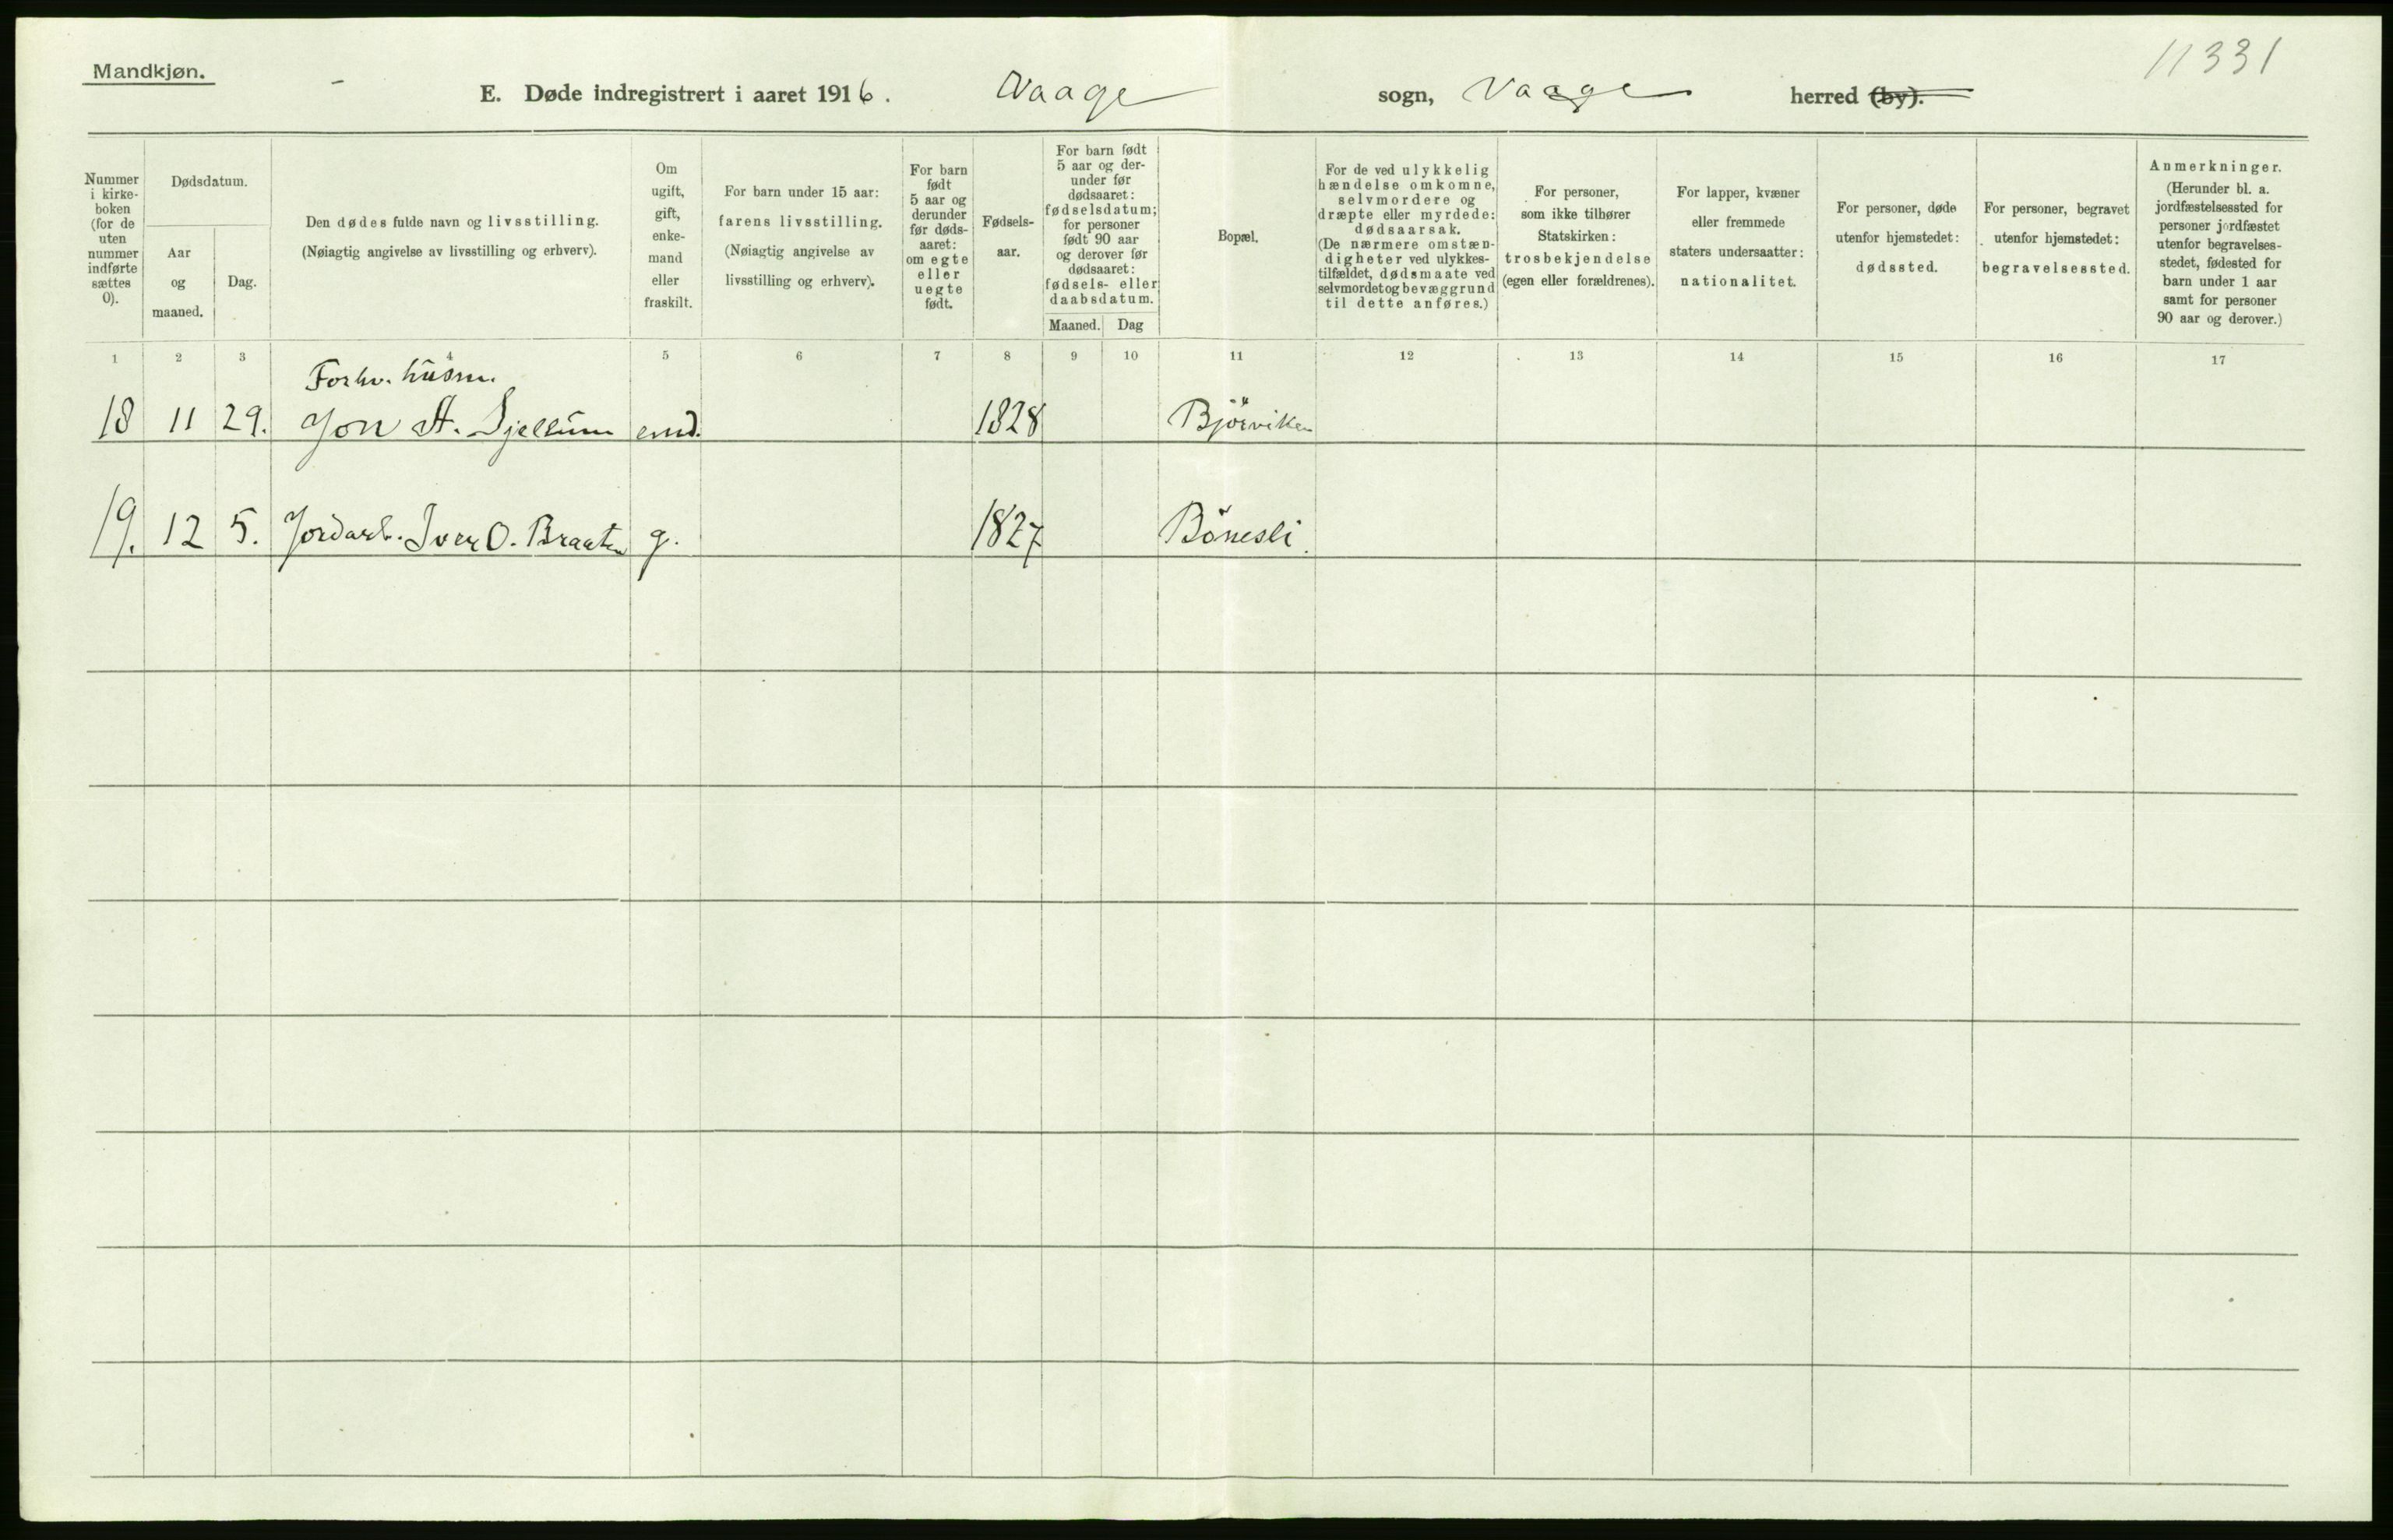 Mandkjøn.
11331
E. Døde indregistrert i aaret 1916. Vaage sogn, Vaage herred (by).
Nummer i kirke- boken (for de uten nummer indførte sættes 0).
Dødsdatum.
Aar og maaned.
Dag.
Den dødes fulde navn og livsstilling.
(Nøiagtig angivelse av livsstilling og erhverv).
Om ugift, gift, enke- mand eller fraskilt.
For barn under 15 aar:
farens livsstilling.
(Nøiagtig angivelse av
livsstilling og erhverv).
For barn født 5 aar og derunder før døds- aaret: om egte eller uegte født.
Fødsels- aar.
For barn født 5 aar og der- under før dødsaaret: fødselsdatum; for personer født 90 aar og derover før dødsaaret: fødsels- eller daabsdatum.
Maaned. Dag
Bopæl.
For de ved ulykkelig hændelse omkomne, selvmordere og dræpte eller myrdede: dødsaarsak. (De nærmere omstæn- digheter ved ulykkes- tilfældet, dødsmaate ved selvmordet og bevæggrund til dette anføres.)
For personer, som ikke tilhører Statskirken: trosbekjendelse (egen eller forældrenes).
For lapper, kvæner eller fremmede staters undersaatter: nationalitet.
For personer, døde utenfor hjemstedet: dødssted.
For personer, begravet utenfor hjemstedet: begravelsessted.
Anmerkninger. (Herunder bl. a. jordfæstelsessted for personer jordfæstet utenfor begravelses- stedet, fødested for barn under 1 aar samt for personer 90 aar og derover.)
1 2 3 4 5 6 7 8 9 10 11 12 13 14 15 16 17
Forhv. husm.
18 11 29. Jon A. Sjellum emd. 1828 Bjørviken
19. 12 5. Jordarb. Iver O. Braaten g. 1827 Bönesli.